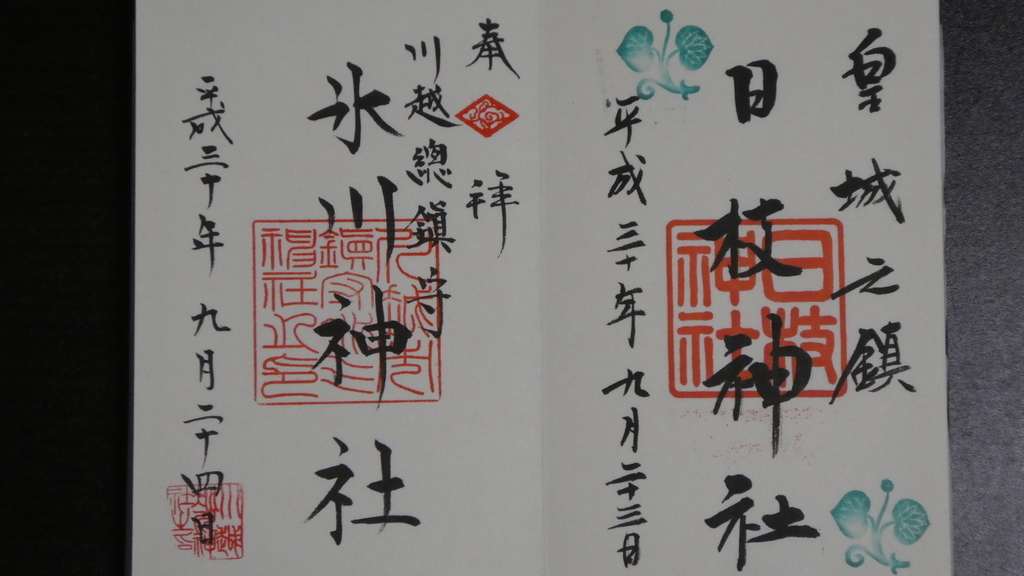 皇城之鎮
日枝神社
平成三十年九月二十三日
日枝神社
奉拝
川越總鎮守
氷川神社
平成三十年九月二十四日